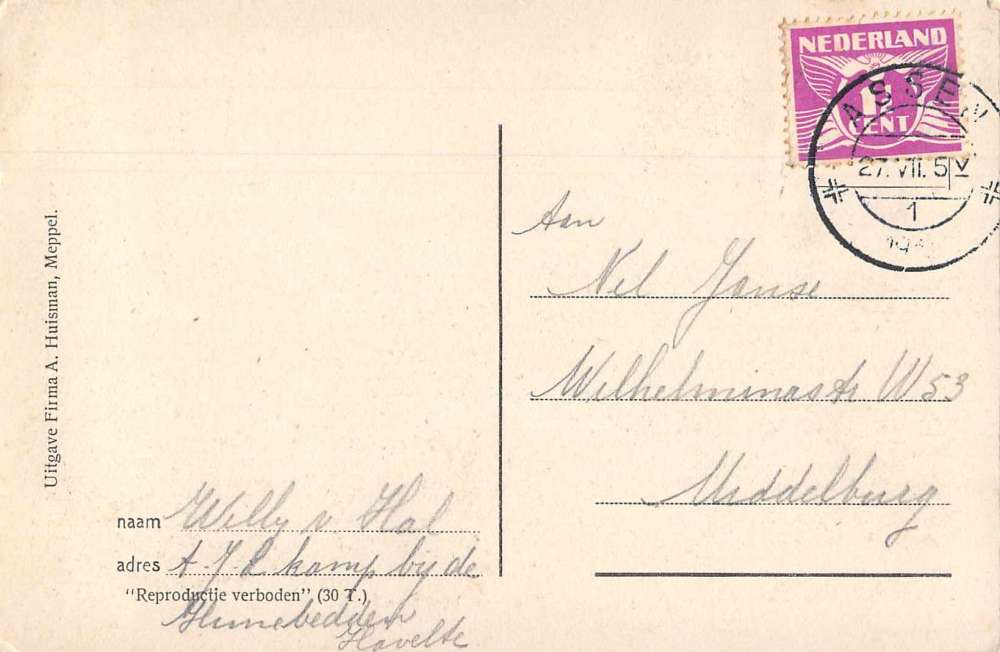 NEDERLAND
1½
CENT
ASSEN
27.VII. 5 V
1
Aan
Nel Janse
Wilhelminastr W53
Middelburg
Uitgave Firma A. Huisman, Meppel.
naam Willy v Hal
adres A-J-C kamp bij de
"Reproductie verboden" (30 T.)
Hunebedden
Havelte